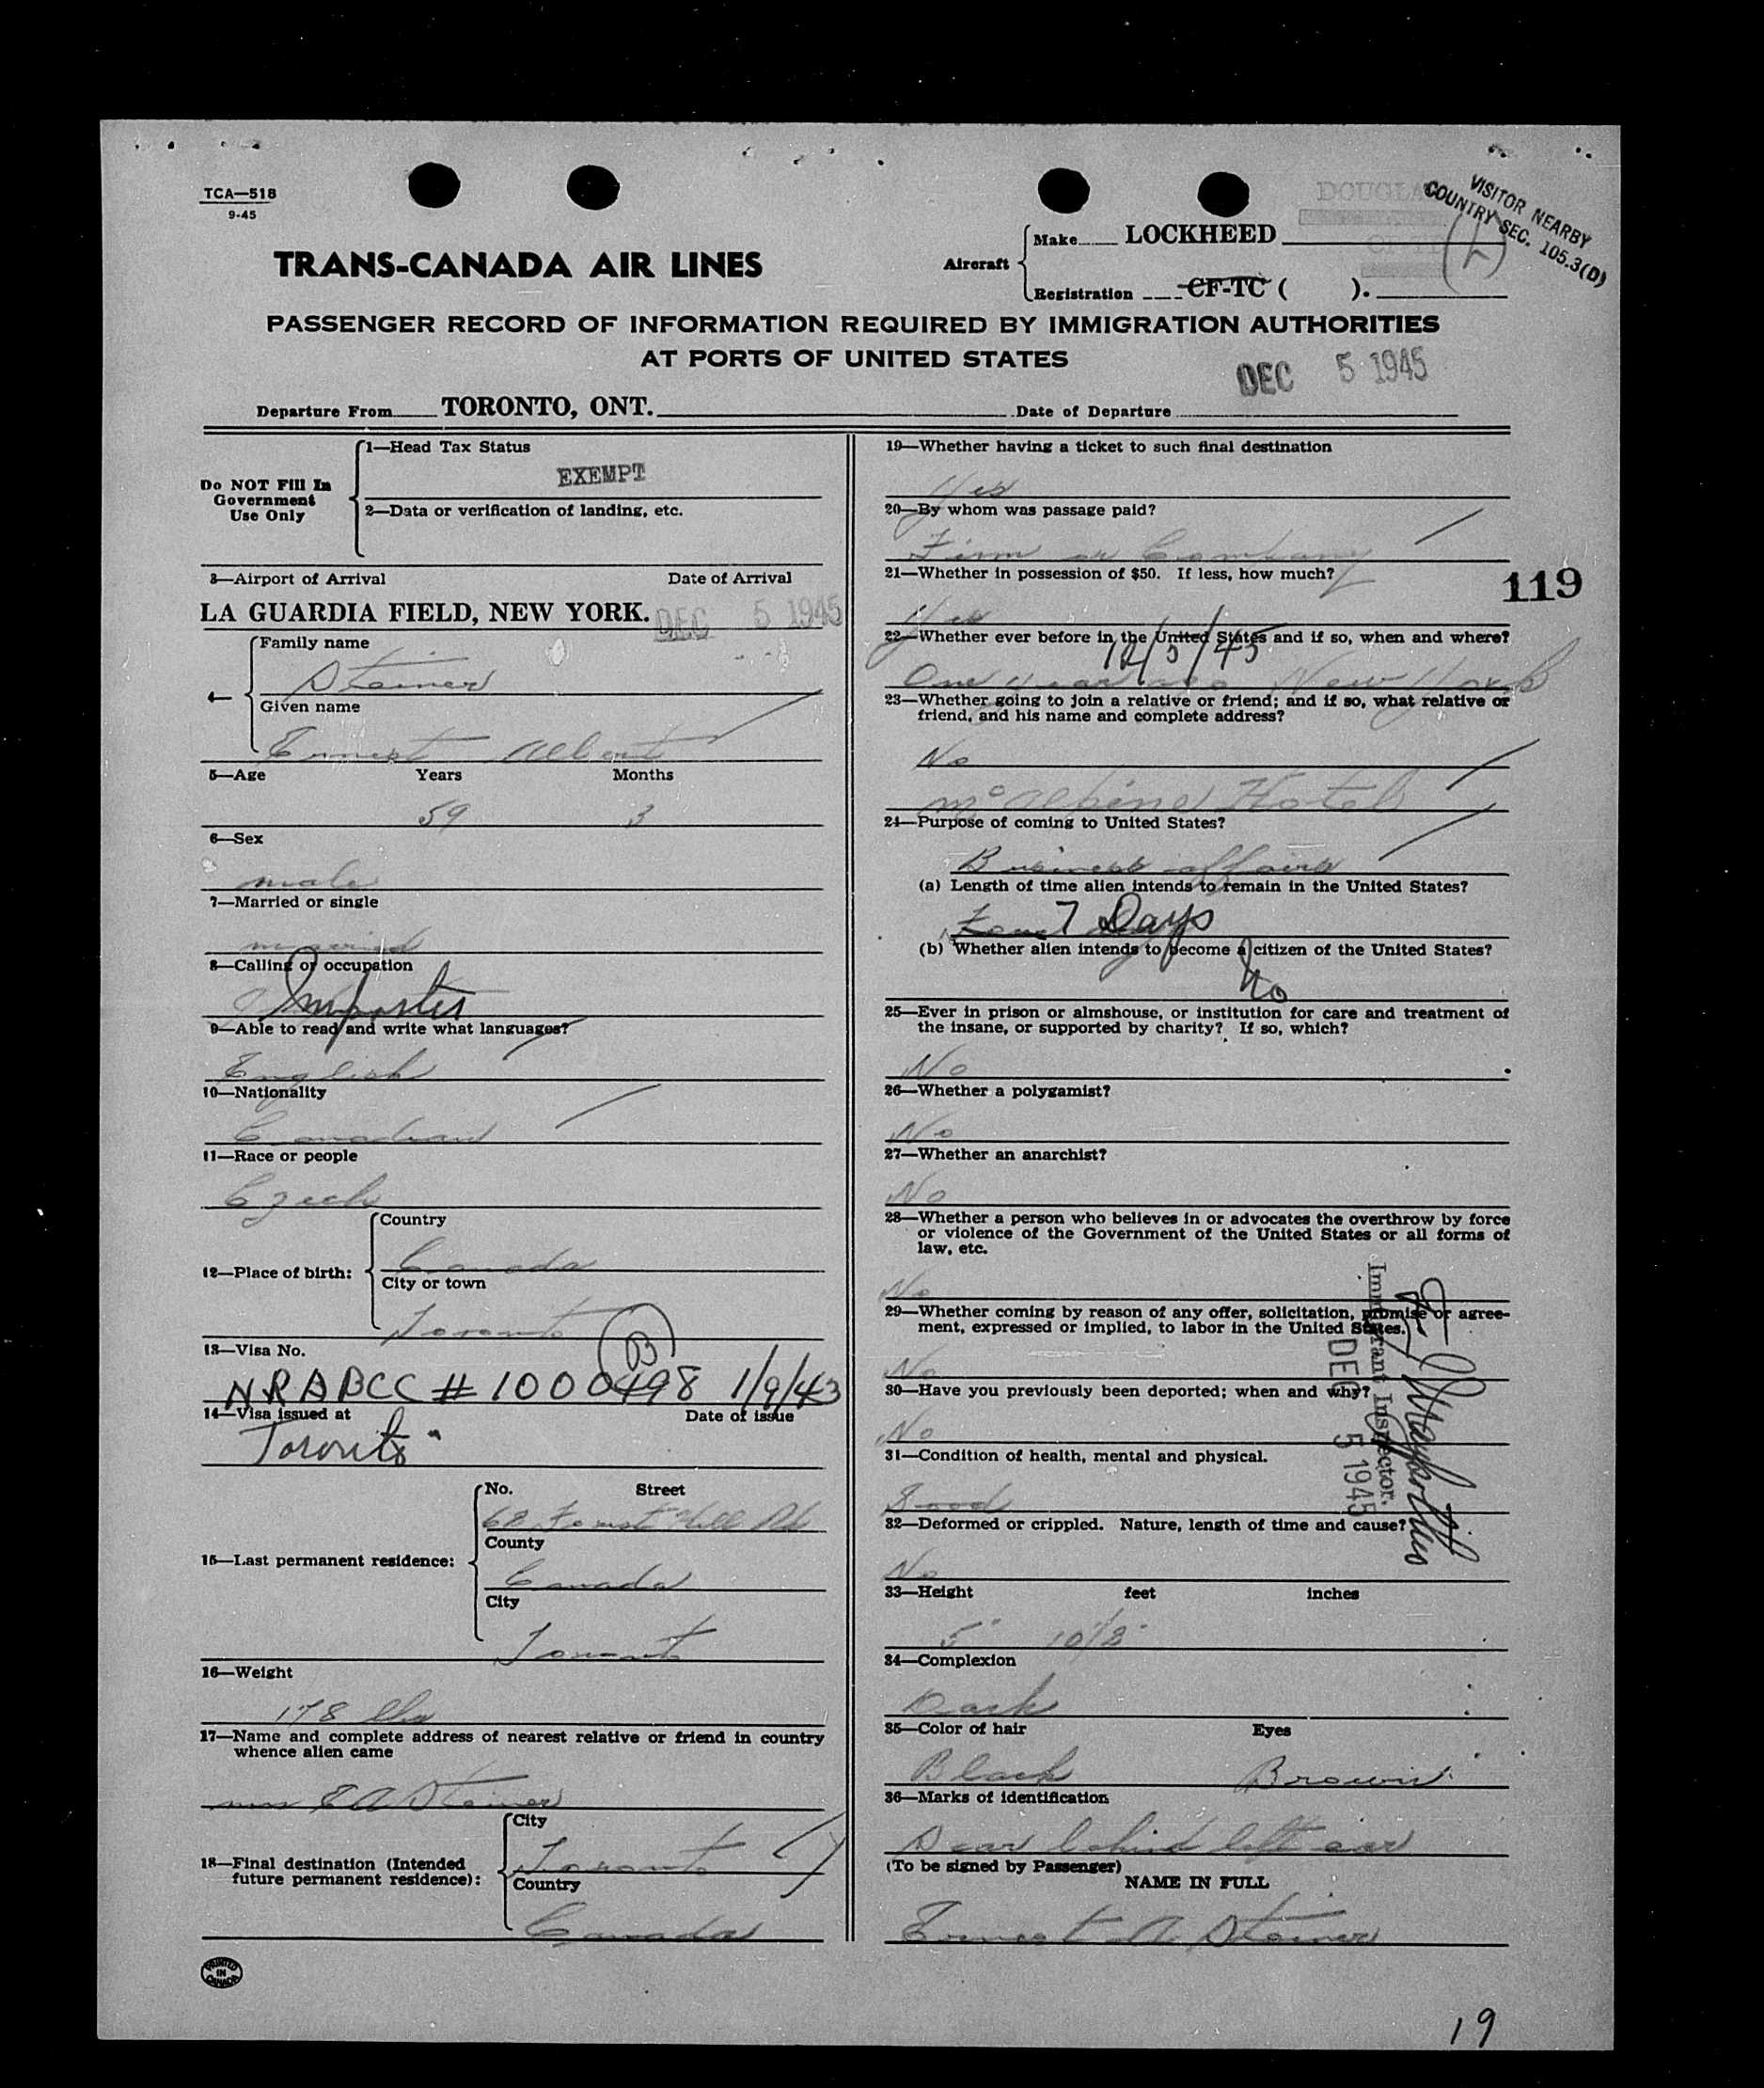 TCA—518
9-45
VISITOR NEARBY
COUNTRY SEC. 105.3(D)
TRANS-CANADA AIR LINES
Aircraft
Make LOCKHEED
Registration CF-TC ( ).
PASSENGER RECORD OF INFORMATION REQUIRED BY IMMIGRATION AUTHORITIES
AT PORTS OF UNITED STATES
DEC 5 1945
Departure From TORONTO, ONT. Date of Departure
Do NOT Fill In
Government
Use Only
1—Head Tax Status
EXEMPT
2—Data or verification of landing, etc.
3—Airport of Arrival Date of Arrival
LA GUARDIA FIELD, NEW YORK. DEC 5 1945
4—
Family name
Steiner
Given name
Ernest Albert
5—Age Years Months
59 3
6—Sex
male
7—Married or single
married
8—Calling or occupation
Importer
9—Able to read and write what languages?
English
10—Nationality
Canadian
11—Race or people
Czech
12—Place of birth:
Country
Canada
City or town
Toronto
13—Visa No.
NRABCC # 1000498 1/9/43
14—Visa issued at Date of issue
Toronto
15—Last permanent residence:
No. Street
68 Forest Hill Rd
County
Canada
City
Toronto
16—Weight
178 lbs
17—Name and complete address of nearest relative or friend in country
whence alien came
mrs E A Steiner
18—Final destination (Intended
future permanent residence):
City
Toronto
Country
Canada
PRINTED
IN
CANADA
19—Whether having a ticket to such final destination
Yes
20—By whom was passage paid?
Firm or Company
21—Whether in possession of $50. If less, how much?
119
Yes
22—Whether ever before in the United States and if so, when and where?
12/5/45
One year ago New York
23—Whether going to join a relative or friend; and if so, what relative or
friend, and his name and complete address?
No
McAlpine Hotel
24—Purpose of coming to United States?
Business affairs
(a) Length of time alien intends to remain in the United States?
7 Days
(b) Whether alien intends to become a citizen of the United States?
No
25—Ever in prison or almshouse, or institution for care and treatment of
the insane, or supported by charity? If so, which?
No
26—Whether a polygamist?
No
27—Whether an anarchist?
No
28—Whether a person who believes in or advocates the overthrow by force
or violence of the Government of the United States or all forms of
law, etc.
No
29—Whether coming by reason of any offer, solicitation, promise or agree-
ment, expressed or implied, to labor in the United States.
No
30—Have you previously been deported; when and why?
No
31—Condition of health, mental and physical.
Good
32—Deformed or crippled. Nature, length of time and cause?
No
Immigrant Inspector.
DEC 5 1945
33—Height feet inches
5' 10 1/2"
34—Complexion
Dark
35—Color of hair Eyes
Black Brown
36—Marks of identification
Scar behind left ear
(To be signed by Passenger)
NAME IN FULL
Ernest A Steiner
19